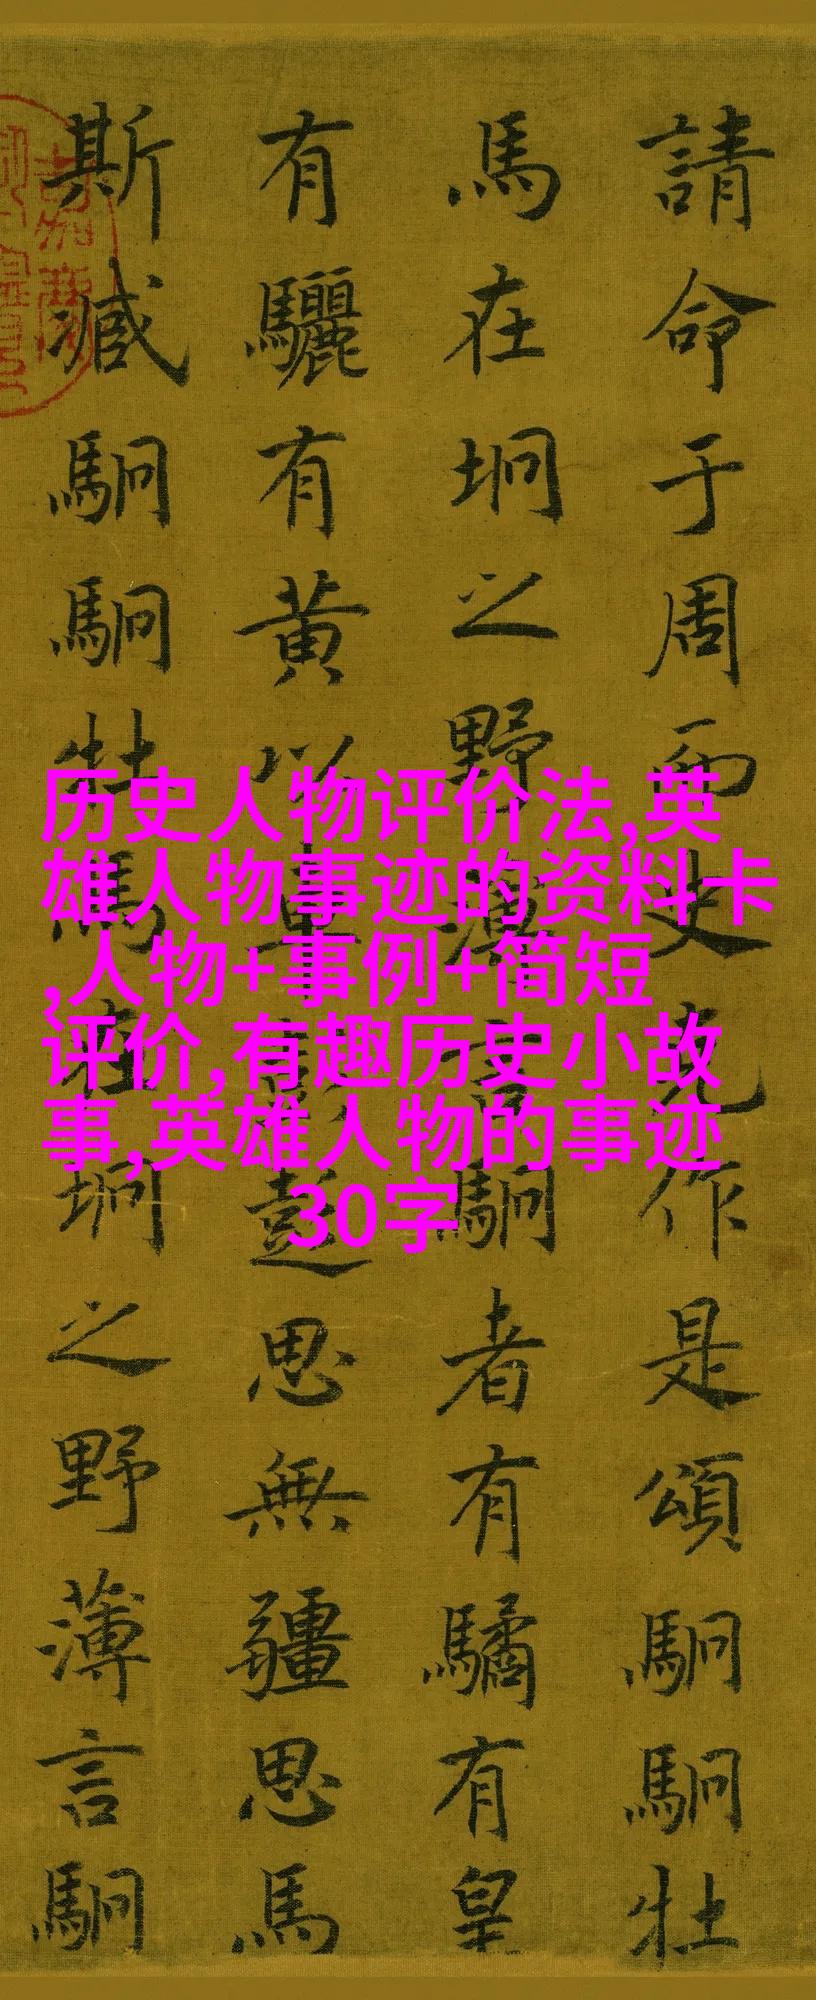 請命于周而史克作是頌駉駉牡
馬在坰之野薄言駉者有驈有皇
有驪有黃以車彭彭思無疆思馬
斯臧駉駉牡馬在坰之野薄言駉
历史人物评价法,英
雄人物事迹的资料卡
,人物+事例+简短
评价,有趣历史小故
事,英雄人物的事迹
30字